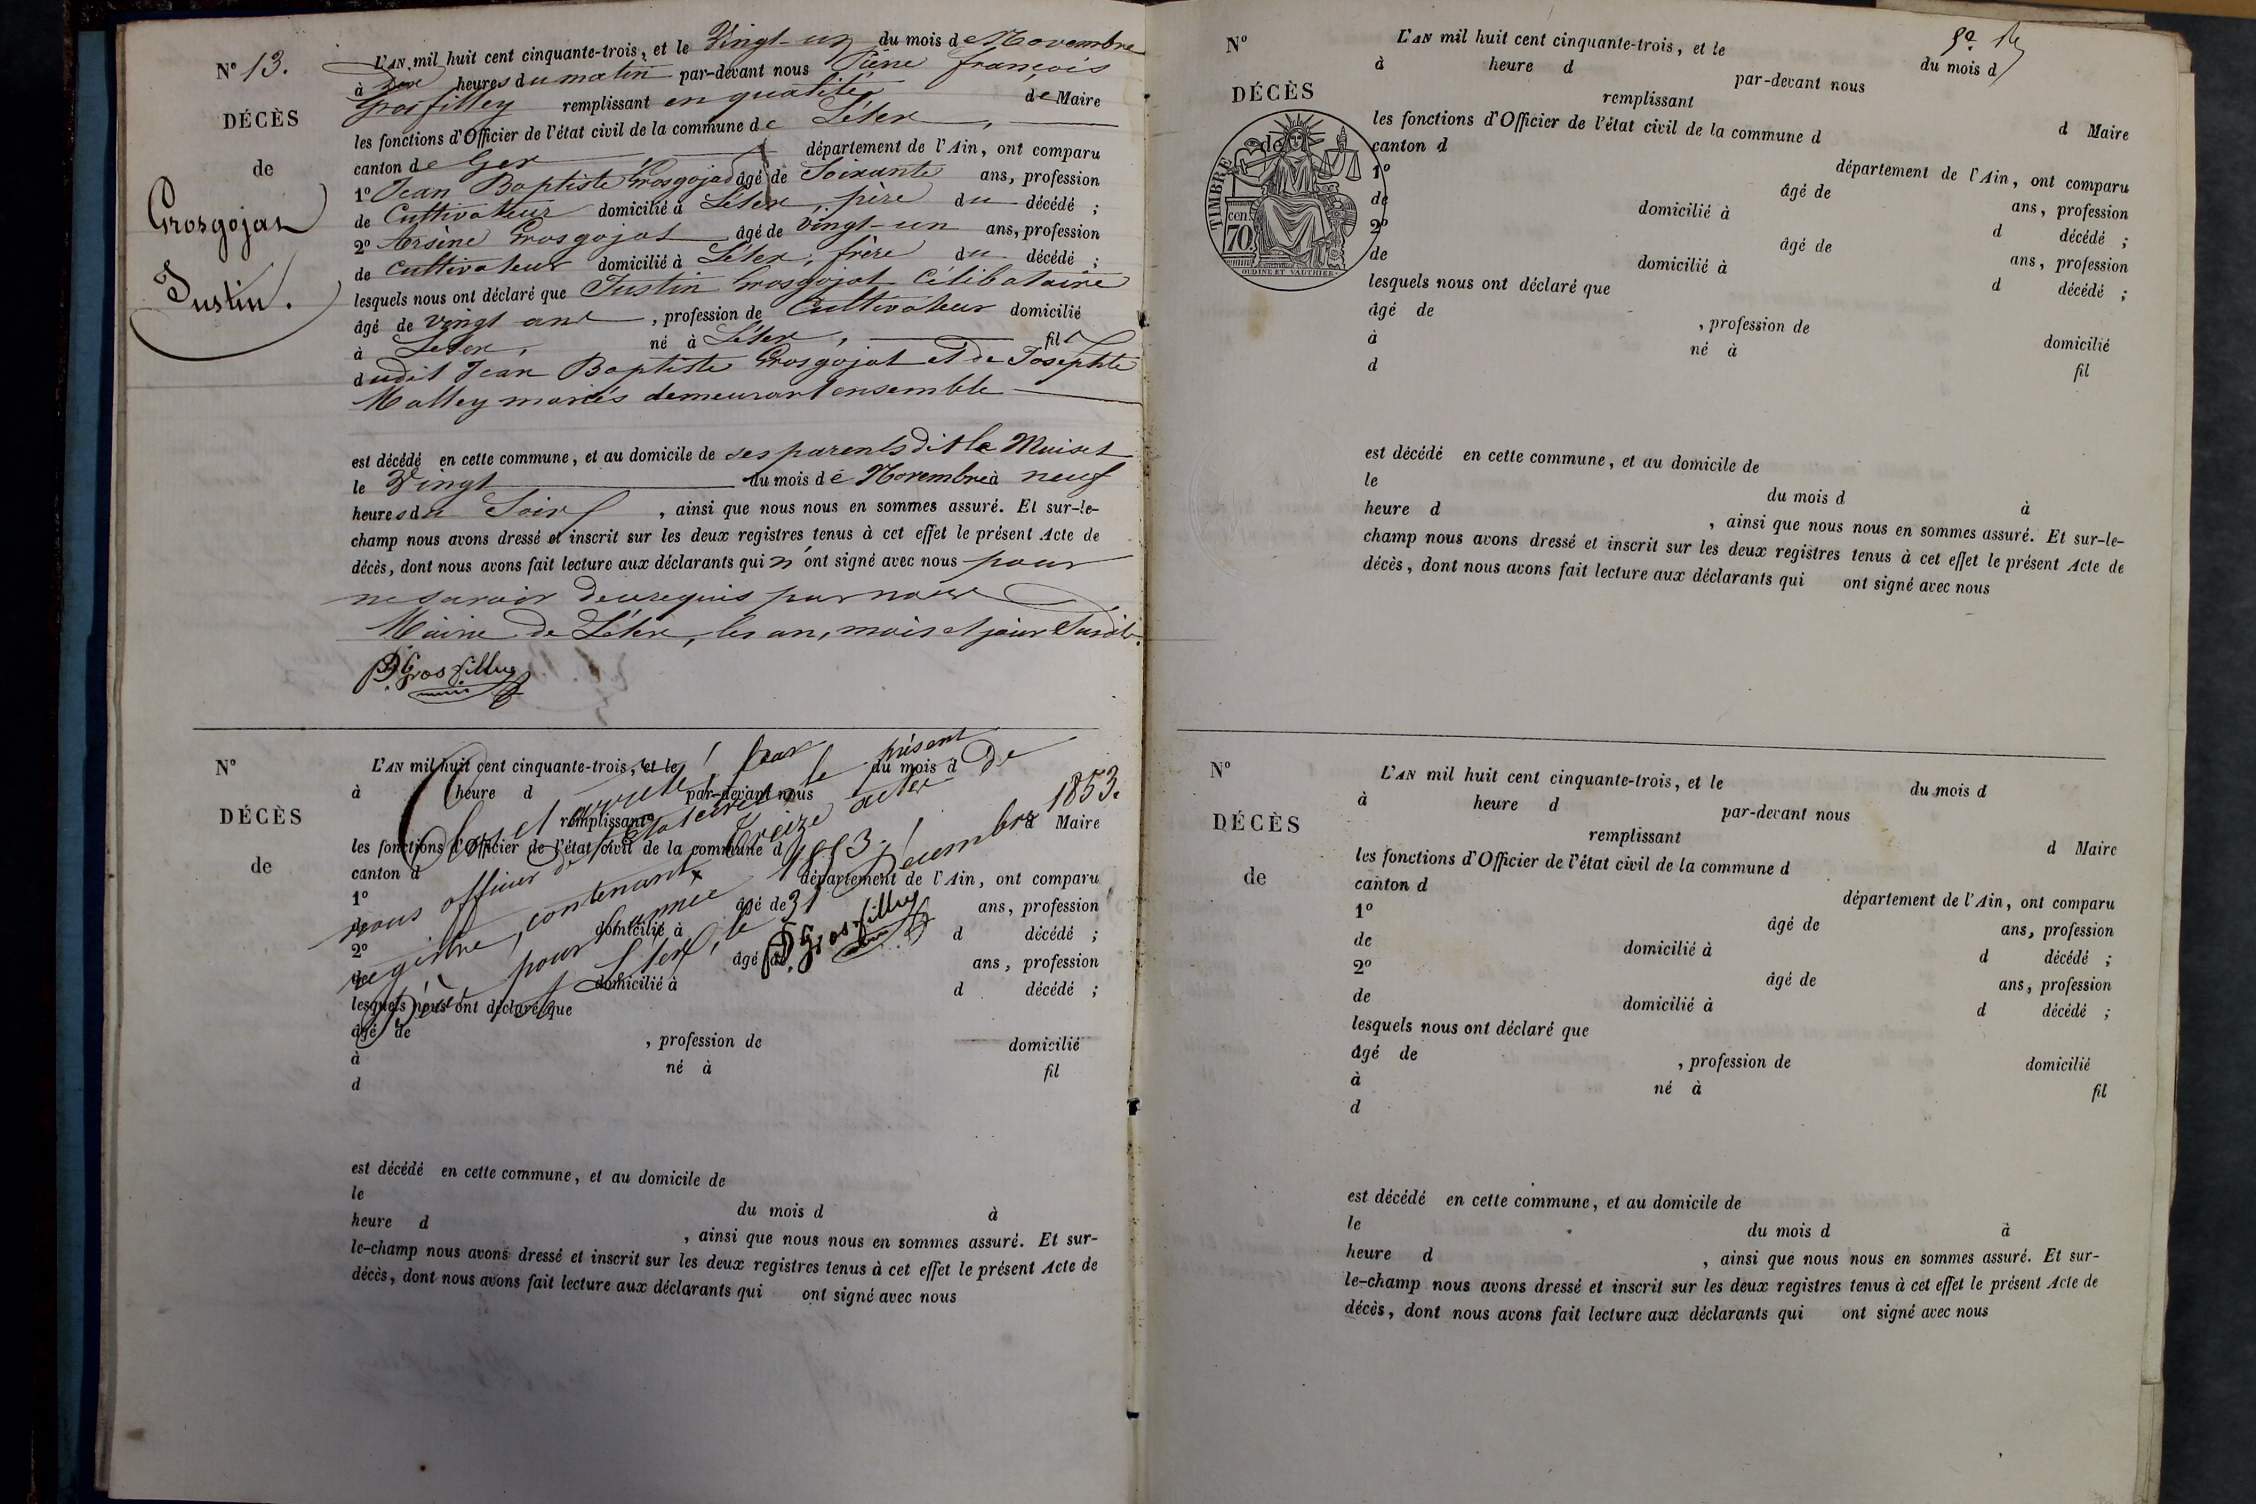 N° 13.
DÉCÈS
de
Grosgojat
Justin.
L'AN mil huit cent cinquante-trois, et le Vingt-un du mois de Novembre
à heures du matin par-devant nous Pierre françois
Grosfilley remplissant en qualité de Maire
les fonctions d'Officier de l'état civil de la commune de Lélex,
canton de Gex département de l'Ain, ont comparu
1° Jean Baptiste Grosgojat âgé de Soixante ans, profession
de Cultivateur domicilié à Lélex, père du décédé ;
2° Arsène Grosgojat âgé de vingt-un ans, profession
de cultivateur domicilié à Lélex, frère du décédé ;
lesquels nous ont déclaré que Justin Grosgojat Célibataire
âgé de vingt ans, profession de Cultivateur domicilié
à Lelex, né à Lélex, fils
dudit Jean Baptiste Grosgojat et de Josephte
Malley mariés demeurant ensemble
est décédé en cette commune, et au domicile de ses parents dit le Muiset
le Vingt du mois de Novembre à neuf
heures du Soir, ainsi que nous nous en sommes assuré. Et sur-le-
champ nous avons dressé et inscrit sur les deux registres tenus à cet effet le présent Acte de
décès, dont nous avons fait lecture aux déclarants qui n'ont signé avec nous pour
ne savoir de ce requis par nous
Maire de Lélex, les an, mois et jour susdits.
P. f. Grosfilley
N°
DÉCÈS
de
L'AN mil huit cent cinquante-trois, et le du mois d
à heure d par-devant nous
remplissant d Maire
les fonctions d'Officier de l'état civil de la commune d
canton d département de l'Ain, ont comparu
1° âgé de ans, profession
de domicilié à d décédé ;
2° âgé de ans, profession
de domicilié à d décédé ;
lesquels nous ont déclaré que
âgé de , profession de domicilié
à né à fil
d
Clos et arrêté par
nous officier de l'état civil le présent
registre, contenant Treize actes de
Décès pour l'année 1853.
Lélex, le 31 Décembre 1853.
P. f. Grosfilley
est décédé en cette commune, et au domicile de
le du mois d à
heure d , ainsi que nous nous en sommes assuré. Et sur-
le-champ nous avons dressé et inscrit sur les deux registres tenus à cet effet le présent Acte de
décès, dont nous avons fait lecture aux déclarants qui ont signé avec nous
N°
DÉCÈS
de
TIMBRE
cen.
70
OUDINE ET VAUTHIER
L'AN mil huit cent cinquante-trois, et le du mois d
à heure d par-devant nous
remplissant d Maire
les fonctions d'Officier de l'état civil de la commune d
canton d département de l'Ain, ont comparu
1° âgé de ans, profession
de domicilié à d décédé ;
2° âgé de ans, profession
de domicilié à d décédé ;
lesquels nous ont déclaré que
âgé de , profession de domicilié
à né à fil
d
est décédé en cette commune, et au domicile de
le du mois d à
heure d , ainsi que nous nous en sommes assuré. Et sur-le-
champ nous avons dressé et inscrit sur les deux registres tenus à cet effet le présent Acte de
décès, dont nous avons fait lecture aux déclarants qui ont signé avec nous
N°
DÉCÈS
de
L'AN mil huit cent cinquante-trois, et le du mois d
à heure d par-devant nous
remplissant d Maire
les fonctions d'Officier de l'état civil de la commune d
canton d département de l'Ain, ont comparu
1° âgé de ans, profession
de domicilié à d décédé ;
2° âgé de ans, profession
de domicilié à d décédé ;
lesquels nous ont déclaré que
âgé de , profession de domicilié
à né à fil
d
est décédé en cette commune, et au domicile de
le du mois d à
heure d , ainsi que nous nous en sommes assuré. Et sur-
le-champ nous avons dressé et inscrit sur les deux registres tenus à cet effet le présent Acte de
décès, dont nous avons fait lecture aux déclarants qui ont signé avec nous